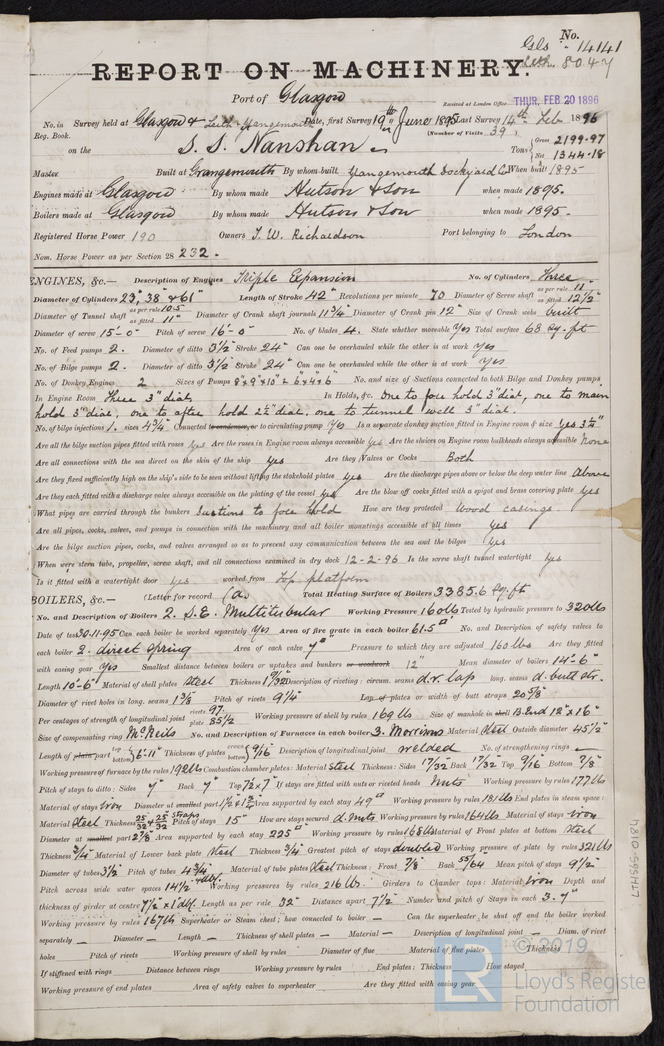 No.
Gls " 14141
Lth. 8047
REPORT ON MACHINERY.
Port of Glasgow
Received at London Office THUR. FEB 20 1896
No. in Survey held at Glasgow & Leith & Grangemouth Date, first Survey 19th June 1895 Last Survey 14th Feb 1896
Reg. Book. (Number of Visits 39)
on the S.S. Nanshan Tons Gross 2199.97
Net 1344.18
Master Built at Grangemouth By whom built Grangemouth Dockyard Co When built 1895
Engines made at Glasgow By whom made Hutson & Son when made 1895.
Boilers made at Glasgow By whom made Hutson & Son when made 1895.
Registered Horse Power 190 Owners T. W. Richardson Port belonging to London
Nom. Horse Power as per Section 28 232.
ENGINES, &c.— Description of Engines Triple Expansion No. of Cylinders Three
Diameter of Cylinders 23", 38" & 61" Length of Stroke 42" Revolutions per minute 70 Diameter of Screw shaft as per rule 11" as fitted 12 1/2"
Diameter of Tunnel shaft as per rule 10.5 as fitted 11" Diameter of Crank shaft journals 11 3/4" Diameter of Crank pin 12" Size of Crank webs built
Diameter of screw 15'-0" Pitch of screw 16'-0" No. of blades 4. State whether moveable Yes Total surface 68 sq. ft
No. of Feed pumps 2. Diameter of ditto 3 1/2" Stroke 24" Can one be overhauled while the other is at work Yes
No. of Bilge pumps 2. Diameter of ditto 3 1/2" Stroke 24" Can one be overhauled while the other is at work Yes
No. of Donkey Engines 2 Sizes of Pumps 8"x9"x10" & 6x4x6 No. and size of Suctions connected to both Bilge and Donkey pumps
In Engine Room Three 3" diar. In Holds, &c. One to fore hold 3" diar, one to main
hold 3" diar, one to after hold 2 1/2" diar, one to tunnel well 3" diar.
No. of bilge injections 1. sizes 4 3/4" Connected to condenser, or to circulating pump Yes Is a separate donkey suction fitted in Engine room & size Yes 3 1/2"
Are all the bilge suction pipes fitted with roses Yes Are the roses in Engine room always accessible Yes Are the sluices on Engine room bulkheads always accessible None
Are all connections with the sea direct on the skin of the ship Yes Are they Valves or Cocks Both
Are they fixed sufficiently high on the ship's side to be seen without lifting the stokehold plates Yes Are the discharge pipes above or below the deep water line Above
Are they each fitted with a discharge valve always accessible on the plating of the vessel Yes Are the blow off cocks fitted with a spigot and brass covering plate Yes
What pipes are carried through the bunkers Suctions to fore hold How are they protected Wood casings
Are all pipes, cocks, valves, and pumps in connection with the machinery and all boiler mountings accessible at all times Yes
Are the bilge suction pipes, cocks, and valves arranged so as to prevent any communication between the sea and the bilges Yes
When were stern tube, propeller, screw shaft, and all connections examined in dry dock 12-2-96 Is the screw shaft tunnel watertight Yes
Is it fitted with a watertight door Yes worked from Top platform
BOILERS, &c.— (Letter for record (a) Total Heating Surface of Boilers 3385.6 sq. ft
No. and Description of Boilers 2. S.E. Multitubular Working Pressure 160 lbs Tested by hydraulic pressure to 320 lbs
Date of test 30-11-95 Can each boiler be worked separately Yes Area of fire grate in each boiler 61.5 □' No. and Description of safety valves to
each boiler 2. direct spring Area of each valve 7□" Pressure to which they are adjusted 160 lbs Are they fitted
with easing gear Yes Smallest distance between boilers or uptakes and bunkers or woodwork 12" Mean diameter of boilers 14'-6"
Length 10'-6" Material of shell plates Steel Thickness 1 9/32 Description of riveting: circum. seams d.r. lap long. seams d. butt str.
Diameter of rivet holes in long. seams 1 3/8 Pitch of rivets 9 1/4" Lap of plates or width of butt straps 20 5/8"
Per centages of strength of longitudinal joint rivets 97 plate 85 1/2 Working pressure of shell by rules 169 lbs Size of manhole in shell B. End 12" x 16"
Size of compensating ring McNeils No. and Description of Furnaces in each boiler 3. Morrisons Material Steel Outside diameter 45 1/2"
Length of plain part top bottom 6'-11" Thickness of plates crown bottom 9/16 Description of longitudinal joint welded No. of strengthening rings
Working pressure of furnace by the rules 192 lbs Combustion chamber plates: Material Steel Thickness: Sides 17/32 Back 17/32 Top 9/16 Bottom 7/8"
Pitch of stays to ditto: Sides 7" Back 7" Top 7 1/2 x 7" If stays are fitted with nuts or riveted heads Nuts Working pressure by rules 177 lbs
Material of stays Iron Diameter at smallest part Area supported by each stay 49□" Working pressure by rules 181 lbs End plates in steam space:
Material Steel Thickness 25/32 + 25/32 Straps Pitch of stays 15" How are stays secured d. nuts Working pressure by rules 164 lbs Material of stays Iron
Diameter at smallest part 2 7/8 Area supported by each stay 225□" Working pressure by rules 165 lbs Material of Front plates at bottom Steel
Thickness 3/4" Material of Lower back plate Steel Thickness 3/4 Greatest pitch of stays doubled Working pressure of plate by rules 321 lbs
Diameter of tubes 3 1/2 Pitch of tubes 4 3/4 Material of tube plates Steel Thickness: Front 7/8 Back 55/64 Mean pitch of stays 9 1/2"
Pitch across wide water spaces 14 1/2" Working pressures by rules 216 lbs Girders to Chamber tops: Material Iron Depth and
thickness of girder at centre 7 1/2 x 1" dbl. Length as per rule 32" Distance apart 7 1/2 Number and pitch of Stays in each 3. 7"
Working pressure by rules 167 lbs Superheater or Steam chest; how connected to boiler — Can the superheater be shut off and the boiler worked
separately — Diameter — Length — Thickness of shell plates — Material — Description of longitudinal joint — Diam. of rivet
holes Pitch of rivets Working pressure of shell by rules Diameter of flue Material of flue plates Thickness
If stiffened with rings Distance between rings Working pressure by rules End plates: Thickness How stayed
Working pressure of end plates Area of safety valves to superheater Are they fitted with easing gear
© 2019
LR
Lloyd's Register
Foundation